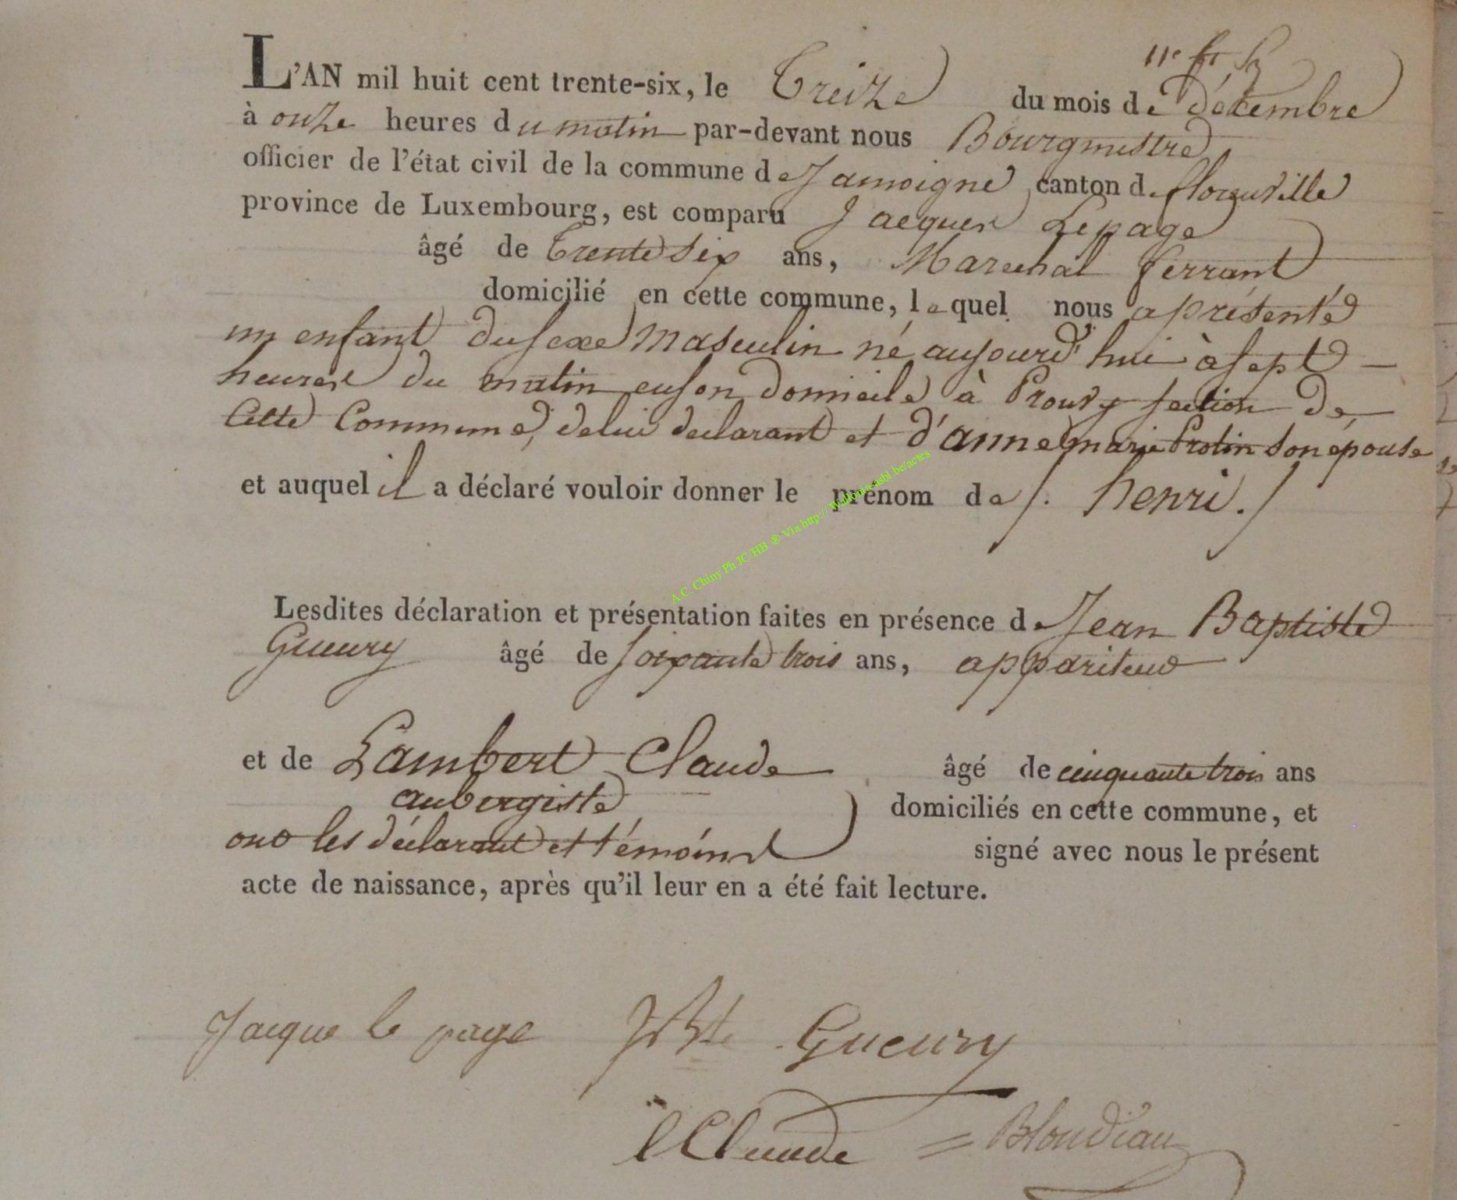 L'AN mil huit cent trente-six, le Treize du mois de décembre
à onze heures du matin par-devant nous Bourgmestre
officier de l'état civil de la commune de Jamoigne canton de florenville
province de Luxembourg, est comparu Jacques Lepage
âgé de trente six ans, Marechal ferrant
domicilié en cette commune, lequel nous a présenté
un enfant du sexe Masculin né aujourd'hui à sept
heures du matin en son domicile à Prouvy section de
Cette Commune, de lui declarant et d'anne marie Protin son épouse
et auquel il a déclaré vouloir donner le prénom de /. henri. /
A.C. Chiny Ph JC HB & Via http://
Lesdites déclaration et présentation faites en présence de Jean Baptiste
Gueury âgé de soixante trois ans, appariteur
et de Lambert Claude âgé de cinquante trois ans
aubergiste domiciliés en cette commune, et
ont les déclarant et témoins signé avec nous le présent
acte de naissance, après qu'il leur en a été fait lecture.
Jacque le page JBte Gueury
lClaude = Blondiau